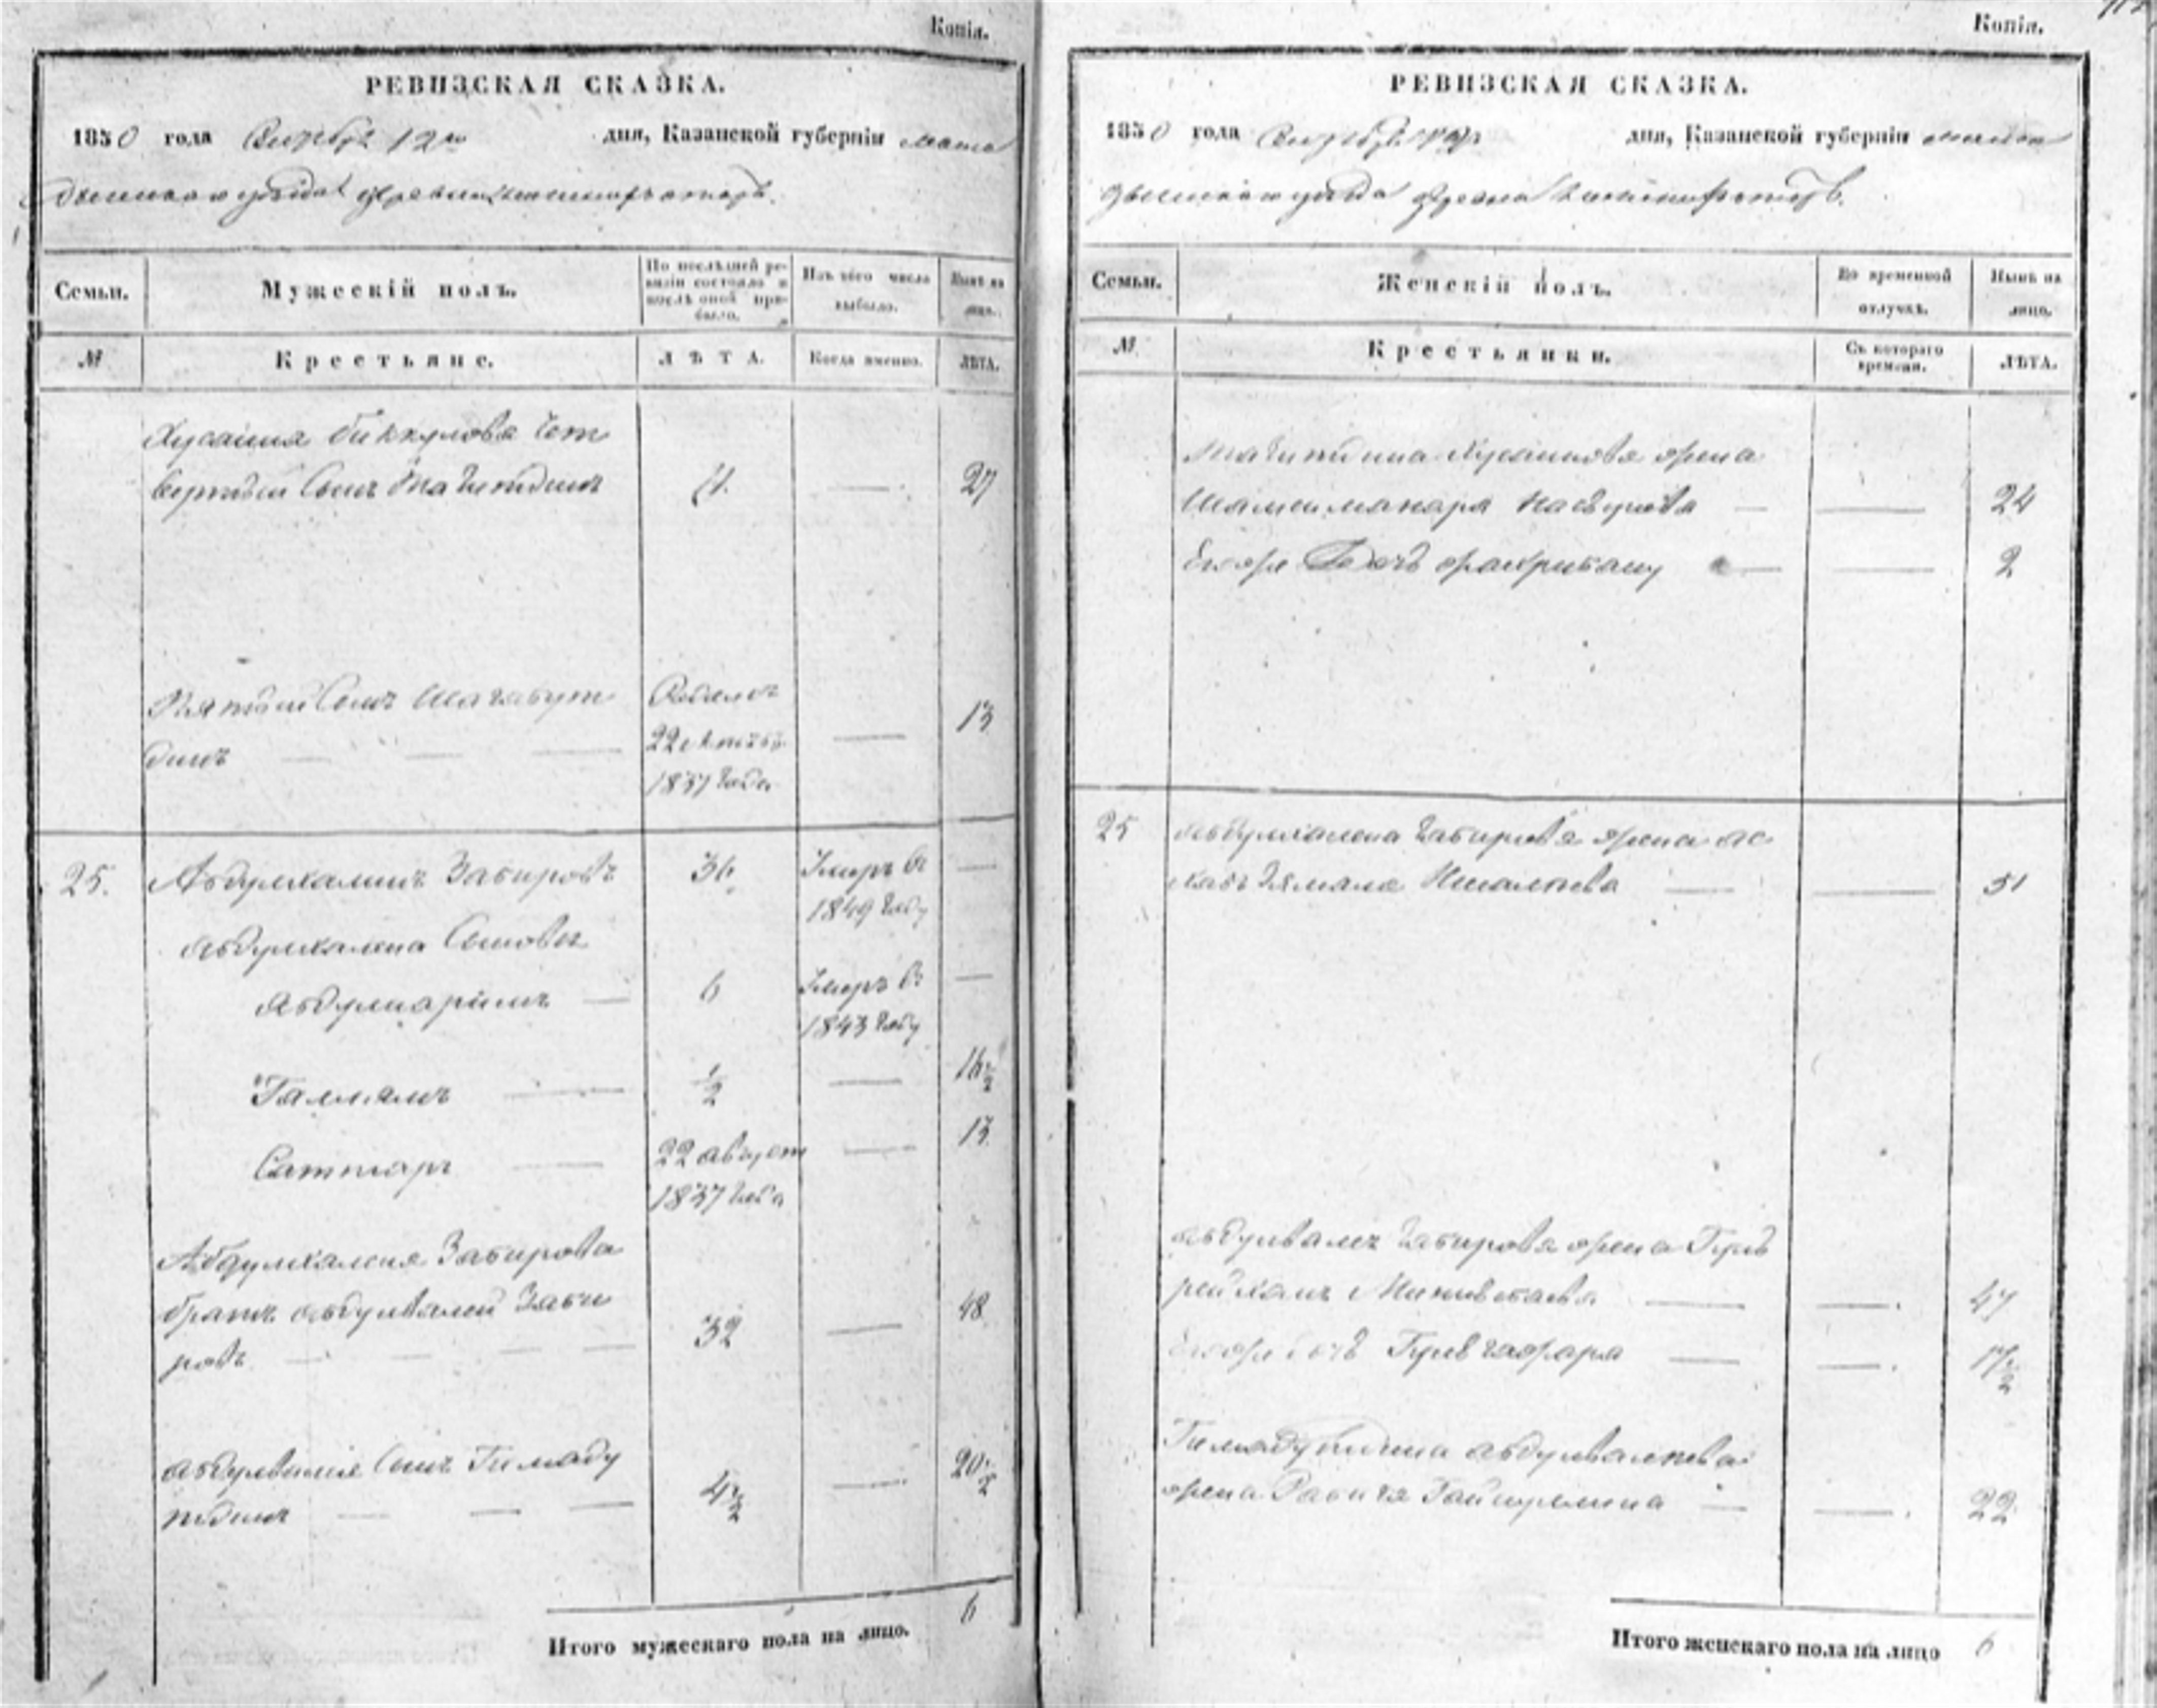 Копія.
РЕВИЗСКАЯ СКАЗКА.
1850 года Октября 12го дня, Казанской губерніи мама
дышскаго уѣзда деревни
Семьи.
Мужескій полъ.
По послѣдней ре-
визіи состояло и
послѣ оной при-
было.
Изъ того числа
выбыло.
Нынѣ на
лицо.
№
Крестьяне.
ЛѢТА.
Когда именно.
ЛѢТА.
Хусаина Биккулова чет
вертый Сынъ Тазитдинъ 11. — 27
Пятый Сынъ Шагабут
динъ — — —
Родился
22
1837 года
— 13
25. Абдулхалинъ Забировъ 36 Умеръ въ —
1849 году
Абдулхалина Сыновья
Абдулкаримъ — 6 Умеръ въ —
1843 году
Галлямъ — 1/2 — 16 1/2
Саттаръ — 22 август — 13
1837 года
Абдулхалина Забирова
братъ Абдулвалей Заби
ровъ — — — 32 — 48
Абдулвалія Сынъ Гимаду
тдинъ — — — 4 1/2 — 20 1/2
Итого мужескаго пола на лицо. 6
Копія.
РЕВИЗСКАЯ СКАЗКА.
1850 года Октября 12 дня, Казанской губерніи мама
дышскаго уѣзда деревни
Семьи.
Женскій полъ.
Во временной
отлучкѣ.
Нынѣ на
лицо.
№
Крестьянки.
Съ котораго
времени.
ЛѢТА.
Хусаинова жена
— — 24
Егоже дочь — — 2
25 Абдулхалина Забирова жена
— — 51
Абдулвалея Забирова жена Гуль
— — 47
Егоже дочь — — 17 1/2
Гимадутдина Абдулвалеева
жена Рабига — — 22
Итого женскаго пола на лицо 6